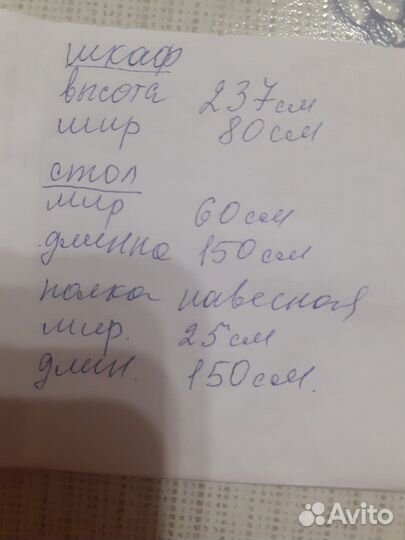 шкаф
высота 237см
шир 80см
стол
шир 60см
длинна 150см
полка навесная
шир. 25см
длин. 150см.
Avito